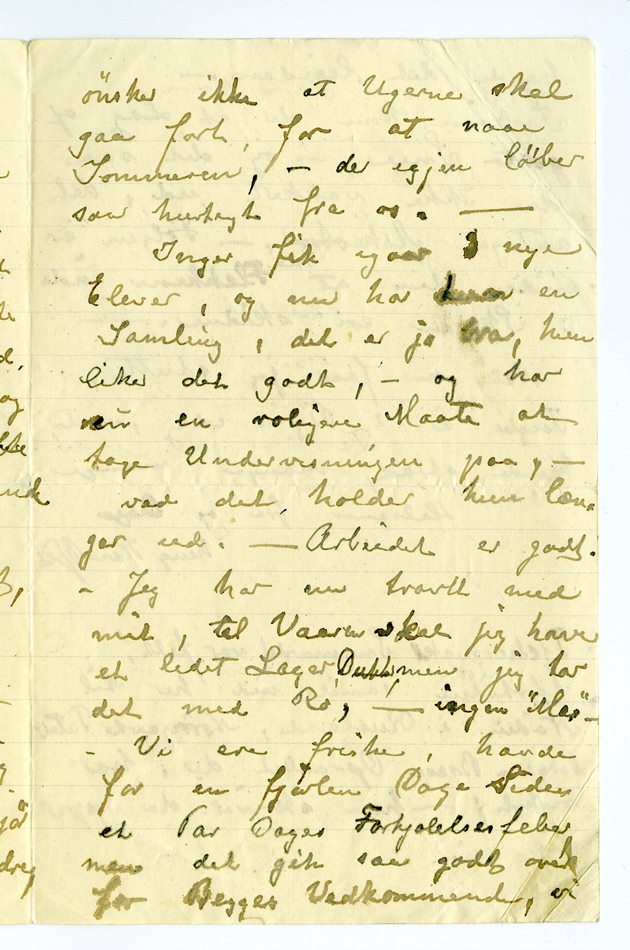 önsker ikke at Ugerne skal
gaa fort, for at naae
Sommeren, – der igjen löber
saa hurtigt fra os. —
Inger fik igaar 3 nye
Elever, og nu har hun en
Samling, det er jo bra, hun
liker det godt, – og har
nu en roligere Maate at
tage Undervisningen paa, –
ved det holder hun læn-
ger ud. — Arbeidet er godt.
– Jeg har nu travlt med
mit, til Vaaren skal jeg have
et lidet Lager, Dukker, men jeg tar
det med Ro, — ingen "Mas" –
– Vi ere friske, havde
for en fjorten Dage Siden
et Par Dages Forkjölelsesfeber
men det gik saa godt over
for Begges Vedkommende, vi